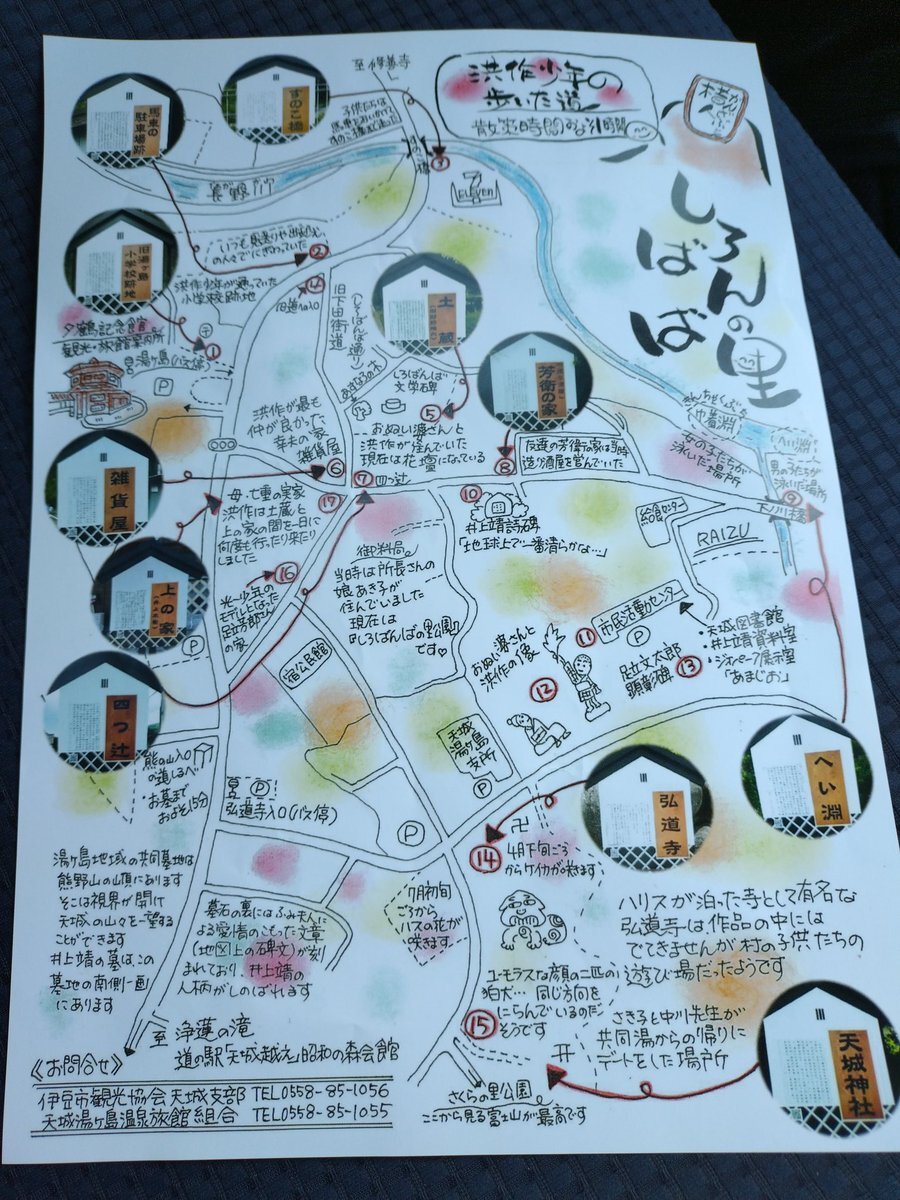 洪作少年の
歩いた道
散策時間およそ1時間
しろばんばの里
馬車の
駐車場跡
すのこ橋
至修善寺
子供たちは
長野川
③
7
ELEVEN
いつも見送りや出迎えの人々でにぎわっていた
②
旧湯ヶ島
小学校跡地
洪作少年が通っていた
小学校跡地
①
④
旧道の入口
旧下田街道
(しろばんば通り)
あすなろの木
夕鶴記念館
観光・旅館案内所
湯ヶ島(バス停)
P
土蔵
しろばんば
文学碑
⑤
おぬい婆さんと
洪作が住んでいた
現在は花壇になっている
芳衛の家
⑧
友達の芳衛の家は当時
造り酒屋を営んでいた
巾着淵
女の子たちが
泳いだ場所
へい淵
男の子たちが
泳いだ場所
⑨
下ノ川橋
洪作が最も
仲が良かった
幸夫の家
雑貨屋
⑥
雑貨屋
⑦
四つ辻
⑰
⑩
井上靖詩碑
「地球上で一番清らかな…」
給食センター
RAIZU
母・七重の実家
洪作は土蔵と
上の家の間を一日に
何度も行ったり来たり
しました
上の家
⑯
光一少年の
モデルとなった
足立芳郎さん
の家
御料局
当時は所長さんの
娘あき子が
住んでいました
現在は
『しろばんばの里公園』
です♡
宿公民館
P
四つ辻
⑪
市民活動センター
P
・天城図書館
・井上靖資料室
・ジオパーク展示室
「あまじお」
おぬい婆さんと
洪作の像
⑫
足立文太郎
顕彰碑
⑬
天城
湯ヶ島
支所
P
熊の山入口
の道しるべ
お墓まで
およそ15分
P
弘道寺入口(バス停)
P
弘道寺
へい淵
⑭
卍
4月下旬ごろ
からケイカが咲きます
湯ヶ島地域の共同墓地は
熊野山の山頂にあります
そこは視界が開け
天城の山々を一望する
ことができます
井上靖の墓は、この
墓地の南側一画
にあります
墓石の裏にはふみ夫人に
よる愛情のこもった文章
(地図上の碑文)が刻
まれており、井上靖の
人柄がしのばれます
7月初旬
ごろから
ハスの花が
咲きます
ハリスが泊った寺として有名な
弘道寺は作品の中には
でてきませんが村の子供たちの
遊び場だったようです
ユーモラスな顔の二匹の
狛犬…同じ方向を
にらんでいるのだ
そうです
⑮
さき子と中川先生が
共同湯からの帰りに
デートをした場所
天城神社
至 浄蓮の滝
道の駅「天城越え」昭和の森会館
さくらの里公園
ここから見る富士山が最高です
《お問合せ》
伊豆市観光協会天城支部 TEL0558-85-1056
天城湯ヶ島温泉旅館組合 TEL0558-85-1055